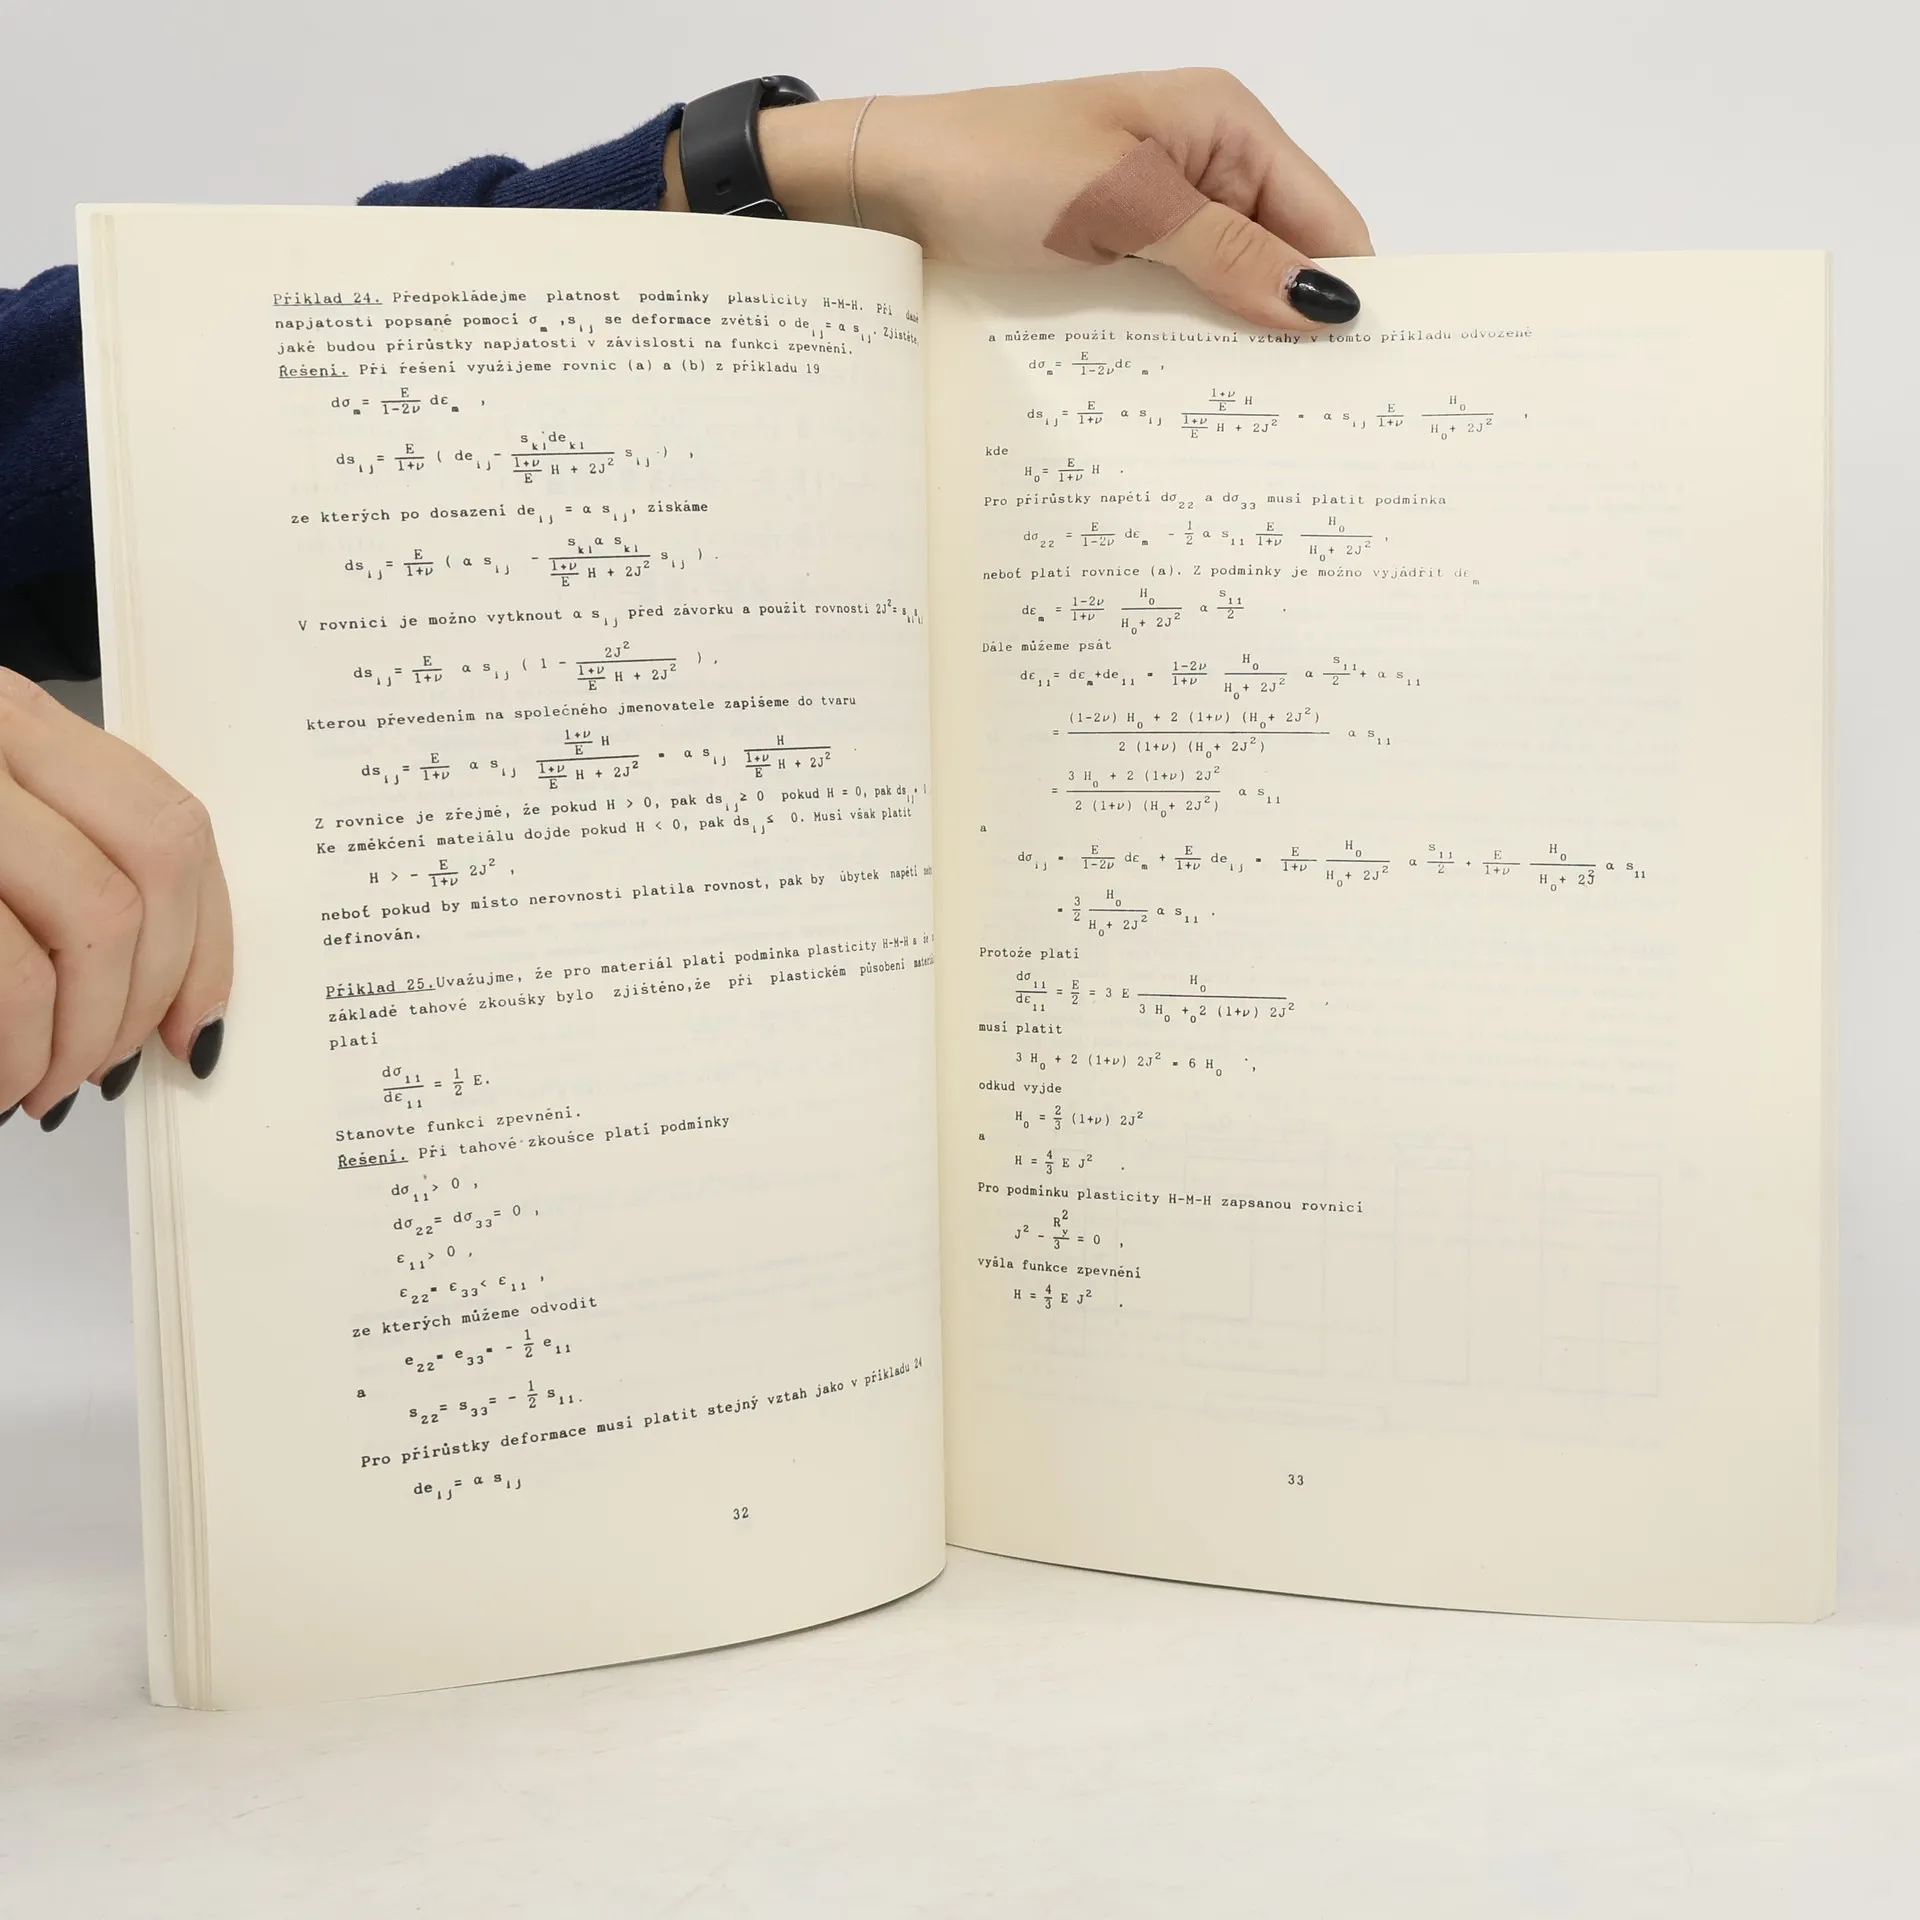 Příklad 24. Předpokládejme platnost podmínky plasticity H-M-H. Při dané
napjatosti popsané pomocí σ_m ,s_ij se deformace zvětší o de_ij = α s_ij. Zjistěte,
jaké budou přírůstky napjatosti v závislosti na funkci zpevnění.
Řešení. Při řešení využijeme rovnic (a) a (b) z příkladu 19
dσ_m = E/(1-2ν) dε_m ,
ds_ij = E/(1+ν) ( de_ij - (s_kl de_kl)/((1+ν)/E H + 2J²) s_ij ) ,
ze kterých po dosazení de_ij = α s_ij, získáme
ds_ij = E/(1+ν) ( α s_ij - (s_kl α s_kl)/((1+ν)/E H + 2J²) s_ij ) .
V rovnici je možno vytknout α s_ij před závorku a použít rovnosti 2J²=
ds_ij = E/(1+ν) α s_ij ( 1 - 2J²/((1+ν)/E H + 2J²) ) ,
kterou převedením na společného jmenovatele zapíšeme do tvaru
ds_ij = E/(1+ν) α s_ij ((1+ν)/E H)/((1+ν)/E H + 2J²) = α s_ij H/((1+ν)/E H + 2J²) .
Z rovnice je zřejmé, že pokud H > 0, pak ds_ij ≥ 0 pokud H = 0, pak ds_ij =
Ke změkčení mateiálu dojde pokud H < 0, pak ds_ij ≤ 0. Musí však platit
H > - E/(1+ν) 2J² ,
neboť pokud by místo nerovnosti platila rovnost, pak by úbytek napětí
definován.
Příklad 25.Uvažujme, že pro materiál platí podmínka plasticity H-M-H a že
základě tahové zkoušky bylo zjištěno,že při plastickém působení
platí
dσ_11/dε_11 = 1/2 E.
Stanovte funkci zpevnění.
Řešení. Při tahové zkoušce platí podmínky
dσ_11 > 0 ,
dσ_22 = dσ_33 = 0 ,
ε_11 > 0 ,
ε_22 = ε_33 < ε_11 ,
ze kterých můžeme odvodit
e_22 = e_33 = - 1/2 e_11
a
s_22 = s_33 = - 1/2 s_11.
Pro přírůstky deformace musí platit stejný vztah jako v příkladu 24
de_ij = α s_ij
32
a můžeme použít konstitutivní vztahy v tomto příkladu odvozené
dσ_m = E/(1-2ν) dε_m ,
ds_ij = E/(1+ν) α s_ij ((1+ν)/E H)/((1+ν)/E H + 2J²) = α s_ij E/(1+ν) H_0/(H_0 + 2J²) ,
kde
H_0 = E/(1+ν) H .
Pro přírůstky napětí dσ_22 a dσ_33 musí platit podmínka
dσ_22 = E/(1-2ν) dε_m - 1/2 α s_11 E/(1+ν) H_0/(H_0 + 2J²) ,
neboť platí rovnice (a). Z podmínky je možno vyjádřit dε_m
dε_m = (1-2ν)/(1+ν) H_0/(H_0 + 2J²) α s_11/2 .
Dále můžeme psát
dε_11 = dε_m+de_11 = (1-2ν)/(1+ν) H_0/(H_0 + 2J²) α s_11/2 + α s_11
= ((1-2ν) H_0 + 2 (1+ν) (H_0 + 2J²))/(2 (1+ν) (H_0 + 2J²)) α s_11
= (3 H_0 + 2 (1+ν) 2J²)/(2 (1+ν) (H_0 + 2J²)) α s_11
a
dσ_ij = E/(1-2ν) dε_m + E/(1+ν) de_ij = E/(1+ν) H_0/(H_0 + 2J²) α s_11/2 + E/(1+ν) H_0/(H_0 + 2J²) α s_11
= 3/2 H_0/(H_0 + 2J²) α s_11 .
Protože platí
dσ_11/dε_11 = E/2 = 3 E H_0/(3 H_0 + 2 (1+ν) 2J²) ,
musí platit
3 H_0 + 2 (1+ν) 2J² = 6 H_0 ,
odkud vyjde
H_0 = 2/3 (1+ν) 2J²
a
H = 4/3 E J² .
Pro podmínku plasticity H-M-H zapsanou rovnicí
J² - R_y²/3 = 0 ,
vyšla funkce zpevnění
H = 4/3 E J² .
33